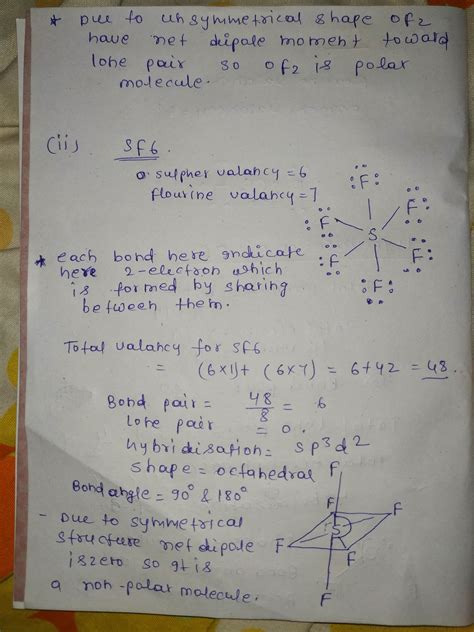 * Due to unsymmetrical shape OF2
have net dipole moment toward
lone pair so OF2 is polar
molecule.
(ii) SF6.
sulpher valancy = 6
flourine valancy = 7
* each bond here indicate
here 2-electron which
is formed by sharing
between them.
F
F F
S
F F
F
Total valancy for SF6
= (6x1)+ (6x7) = 6+42 = 48.
Bond pair = 48/8 = 6
lone pair = 0.
Hybridisation = sp3d2
shape = octahedral
Bond angle = 90° & 180°
- Due to symmetrical
structure net dipole
is zero so it is
a non-polar molecule.
F
F F
S
F F
F